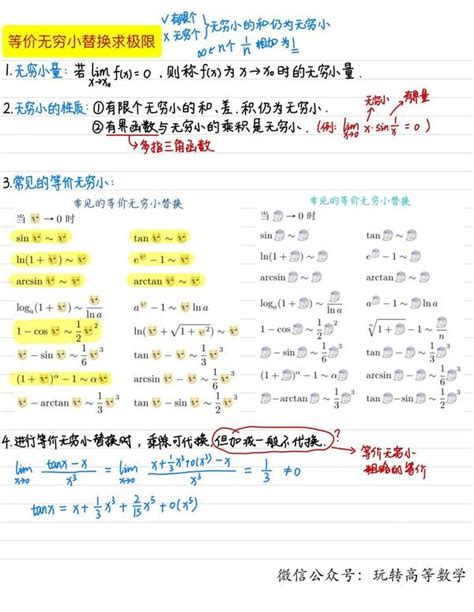 等价无穷小替换求极限
✓ 有限个
× 无穷个 } 无穷小的和仍为无穷小
∞ 个 1/n 相加为 1
1.无穷小量: 若 lim x→x₀ f(x)=0, 则称 f(x) 为 x→x₀ 时的无穷小量.
2.无穷小的性质: ①有限个无穷小的和、差、积仍为无穷小.
无穷小 有界量
②有界函数与无穷小的乘积是无穷小. (例: lim x→0 x·sin 1/x = 0)
↳ 多指三角函数
3.常见的等价无穷小:
常见的等价无穷小替换
当 → 0 时
sin ~ tan ~
ln(1+ ) ~ e − 1 ~
arcsin ~ arctan ~
logₐ(1+ ) ~ /ln a a − 1 ~ ln a
1 − cos ~ 1/2 ² ln( + √(1+ ²)) ~
− sin ~ 1/6 ³ tan − ~ 1/3 ³
(1+ )^α − 1 ~ α arcsin − ~ 1/6 ³
− arctan ~ 1/3 ³ tan − sin ~ 1/2 ³
常见的等价无穷小替换
当 → 0 时
sin ~ tan ~
ln(1+ ) ~ e − 1 ~
arcsin ~ arctan ~
logₐ(1+ ) ~ /ln a a − 1 ~ ln a
1 − cos ~ 1/2 ⁿ√(1+ ) − 1 ~ /n
− sin ~ 1/6 tan − ~ 1/3
(1+ )^α − 1 ~ α arcsin − ~ 1/6
− arctan ~ 1/3 tan − sin ~ 1/2
4.进行等价无穷小替换时, 乘除可代换, 但加减一般不代换. ?
等价无穷小
的等价
lim x→0 (tanx − x)/x³ = lim x→0 (x + 1/3 x³ + o(x³) − x)/x³ = 1/3 ≠ 0
tanx = x + 1/3 x³ + 2/15 x⁵ + o(x⁵)
微信公众号: 玩转高等数学